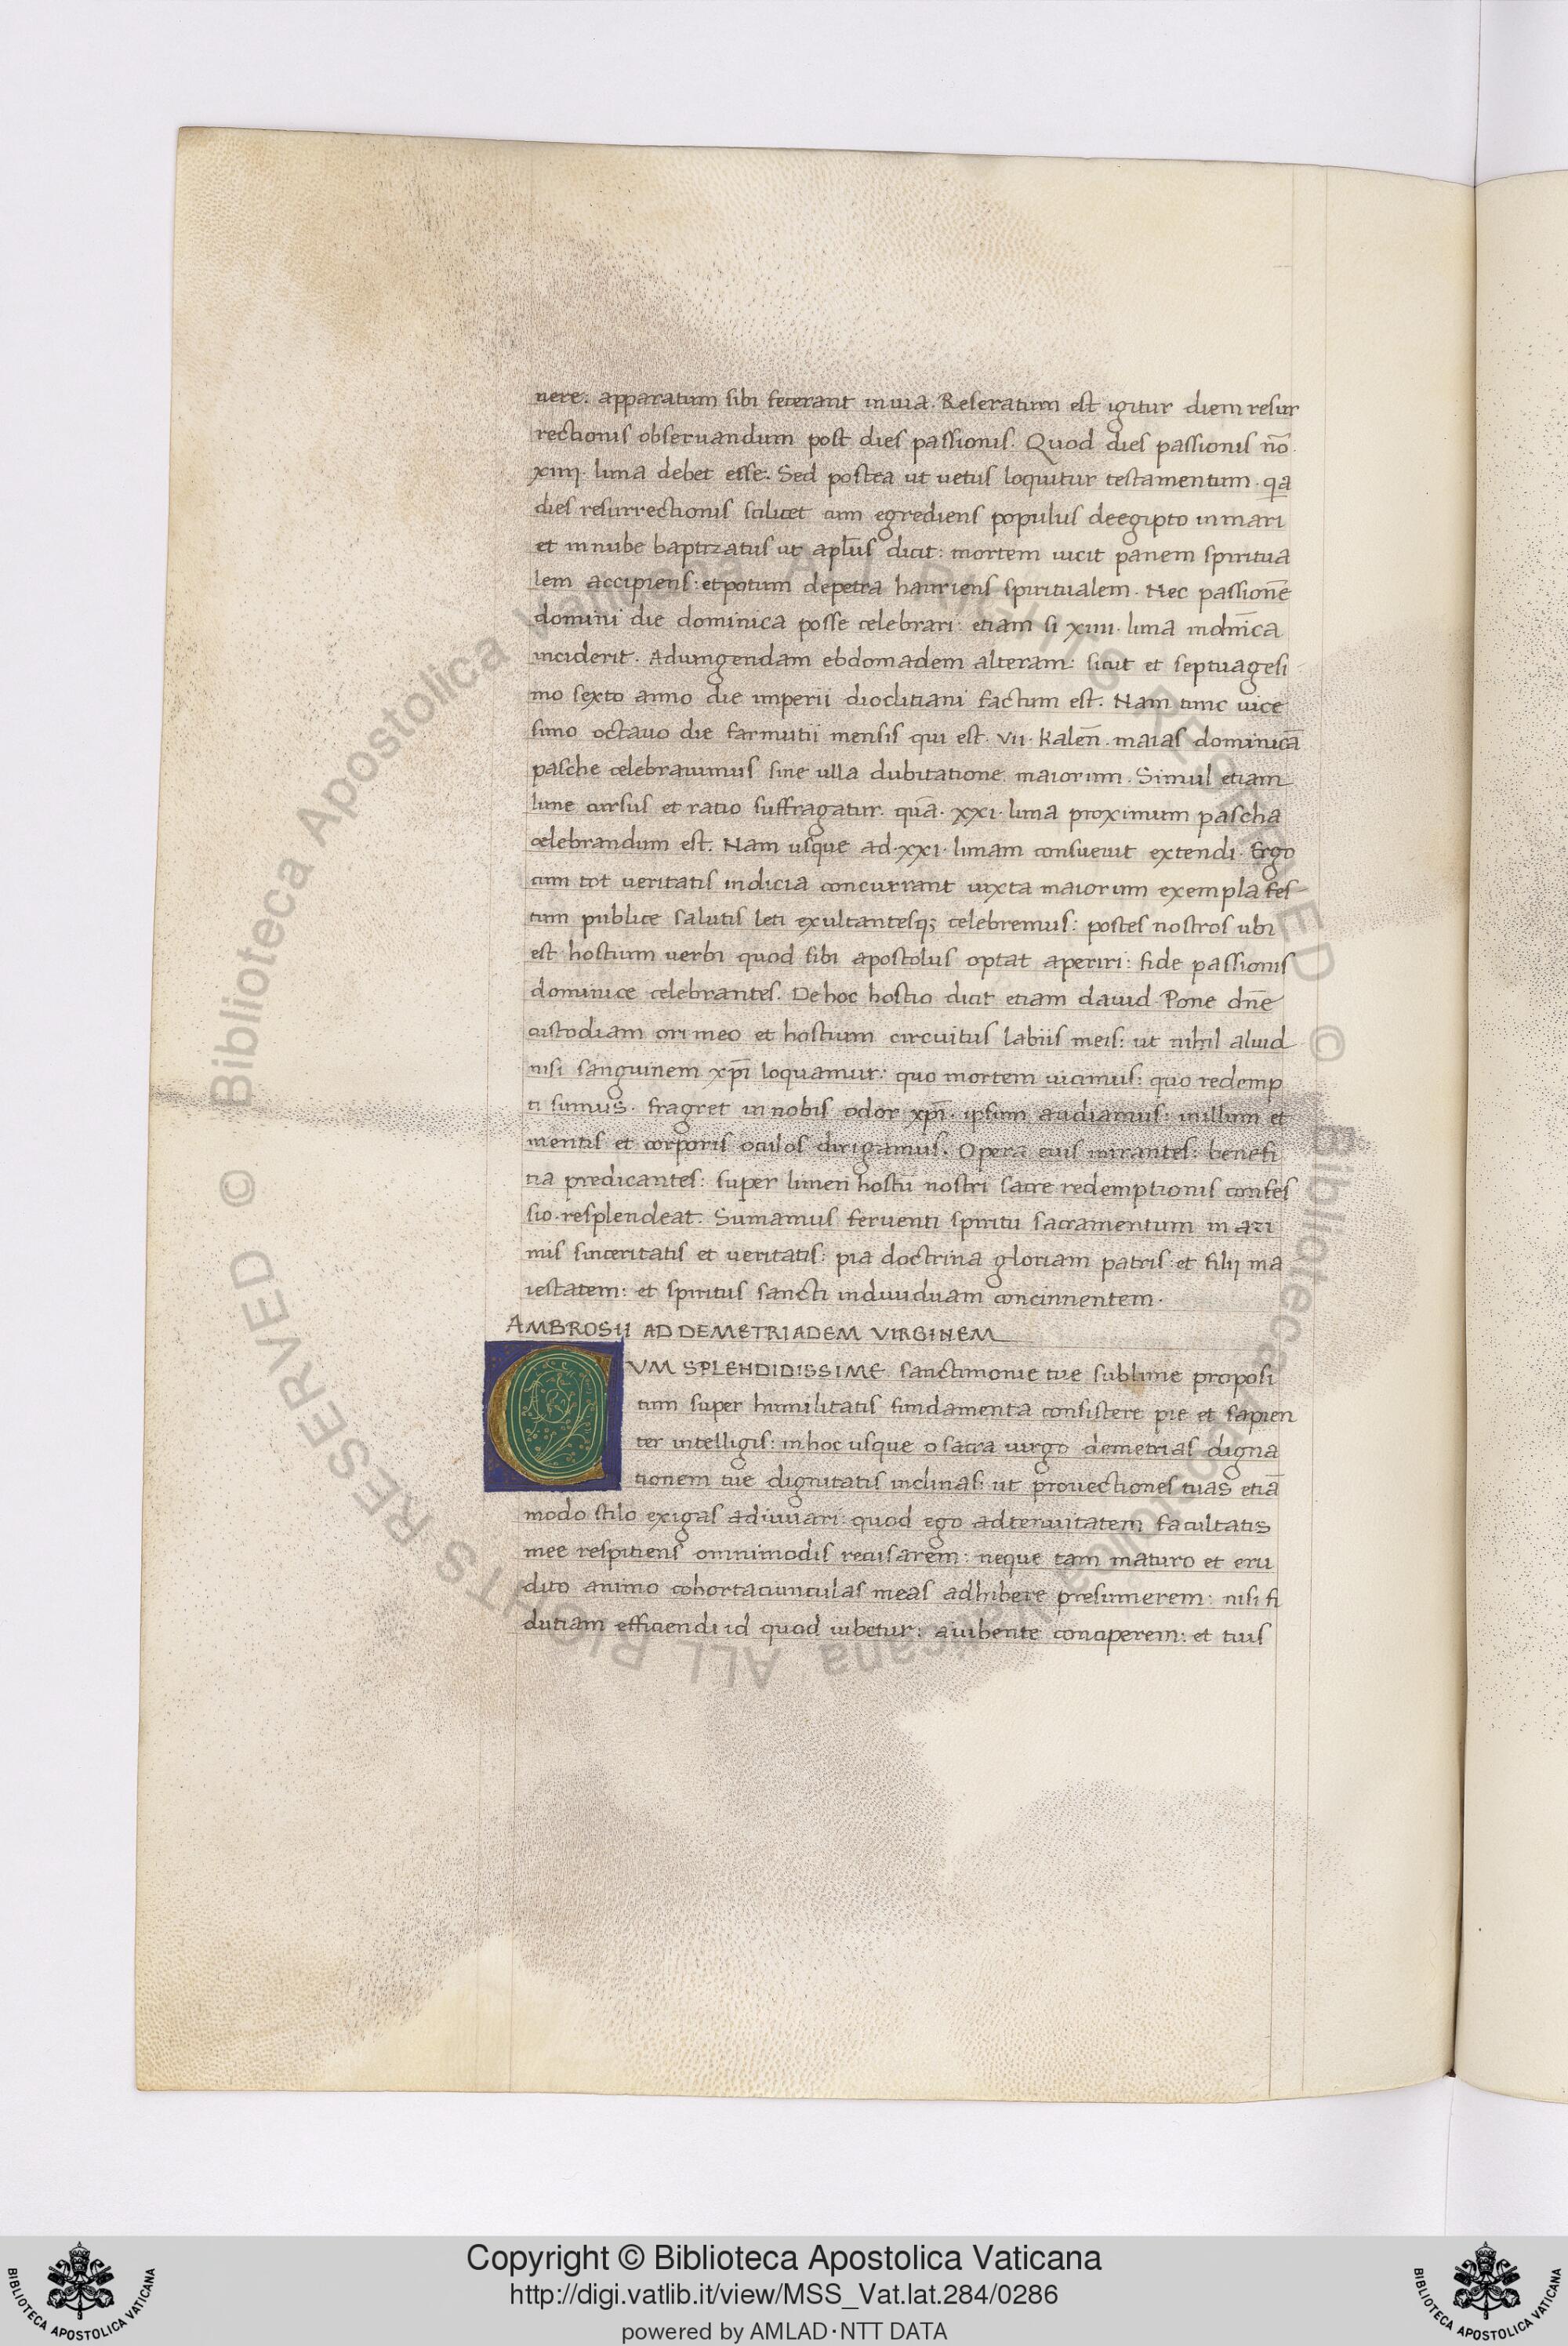 nere: apparatum sibi fecerant in uia. Reseratum est igitur diem resur
rectionis obseruandum post dies passionis. Quod dies passionis nō
xiiii. luna debet esse. Sed postea ut uetus loquitur testamentum. qa
dies resurrectionis scilicet cum egrediens populus deegipto in mari
et in nube baptizatus ut apl̄us dicit: mortem uicit panem spiritua
lem accipiens: et potum depetra hauriens spiritualem. Nec passionē
domini die dominica posse celebrari: etiam si xiiii. luna in dn̄ica
inciderit. Adiungendam ebdomadem alteram: sicut et septuagesi
mo sexto anno die imperii dioclitiani factum est. Nam tunc uice
simo octauo die farmutii mensis qui est. vii. kalen̄. maias dominicā
pasche celebrauimus sine ulla dubitatione maiorum. Simul etiam
lune cursus et ratio suffragatur. quā. xxi. luna proximum pascha
celebrandum est. Nam usque ad. xxi. lunam consueuit extendi. Ergo
cum tot ueritatis indicia concurrant iuxta maiorum exempla fes
tum publice salutis leti exultantesq; celebremus: postes nostros ubi
est hostium uerbi quod sibi apostolus optat aperiri: fide passionis
dominice celebrantes. De hoc hostio dicit etiam dauid. Pone dn̄e
custodiam ori meo et hostium circuitus labiis meis: ut nihil aliud
nisi sanguinem xp̄i loquamur: quo mortem uicimus: quo redemp
ti sumus. fragret in nobis odor xp̄i. ipsum audiamus: in illum et
mentis et corporis oculos dirigamus. Opera eius mirantes: benefi
tia predicantes: super limen hostii nostri sacre redemptionis confes
sio. resplendeat. Sumamus feruenti spiritu sacramentum in azi
mis sinceritatis et ueritatis: pia doctrina gloriam patris: et filij ma
iestatem: et spiritus sancti indiuiduam concinnentem.
AMBROSII AD DEMETRIADEM VIRGINEM
CVM SPLENDIDISSIME sanctimonie tue sublime proposi
tum super humilitatis fundamenta consistere pie et sapien
ter intelligis: in hoc usque o sacra uirgo demetrias digna
tionem tue dignitatis inclinas: ut prouectiones tuas etiā
modo stilo exigas adiuuari: quod ego ad tenuitatem facultatis
mee respitiens omnimodis recusarem: neque tam maturo et eru
dito animo cohortaciunculas meas adhibere presumerem: nisi fi
dutiam efficiendi id quod iubetur: a iubente conciperem: et tuis
Copyright © Biblioteca Apostolica Vaticana
http://digi.vatlib.it/view/MSS_Vat.lat.284/0286
powered by AMLAD·NTT DATA
BIBLIOTECA APOSTOLICA VATICANA
BIBLIOTECA APOSTOLICA VATICANA
© Biblioteca Apostolica Vaticana ALL RIGHTS RESERVED
© Biblioteca Apostolica Vaticana ALL RIGHTS RESERVED